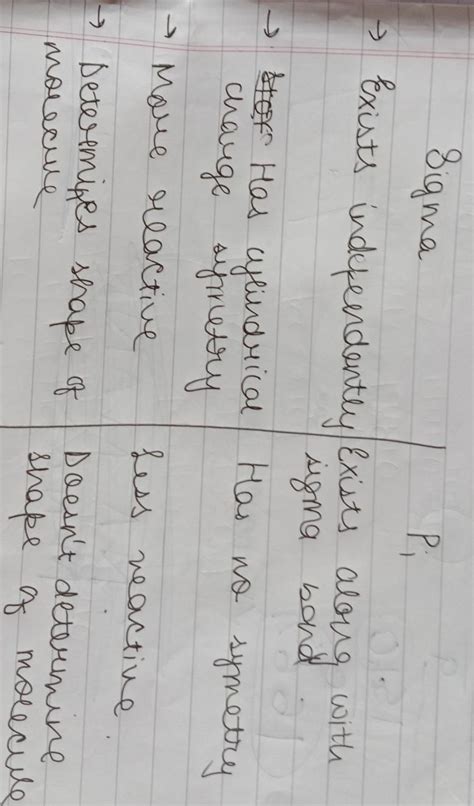 Sigma
Pi
→ Exists independently
Exists along with
sigma bond
→ Has cylindrical
change symetry
Has no symetry
→ More reactive
Less reactive
→ Determines shape of
molecule
Doesn't determine
shape of molecule